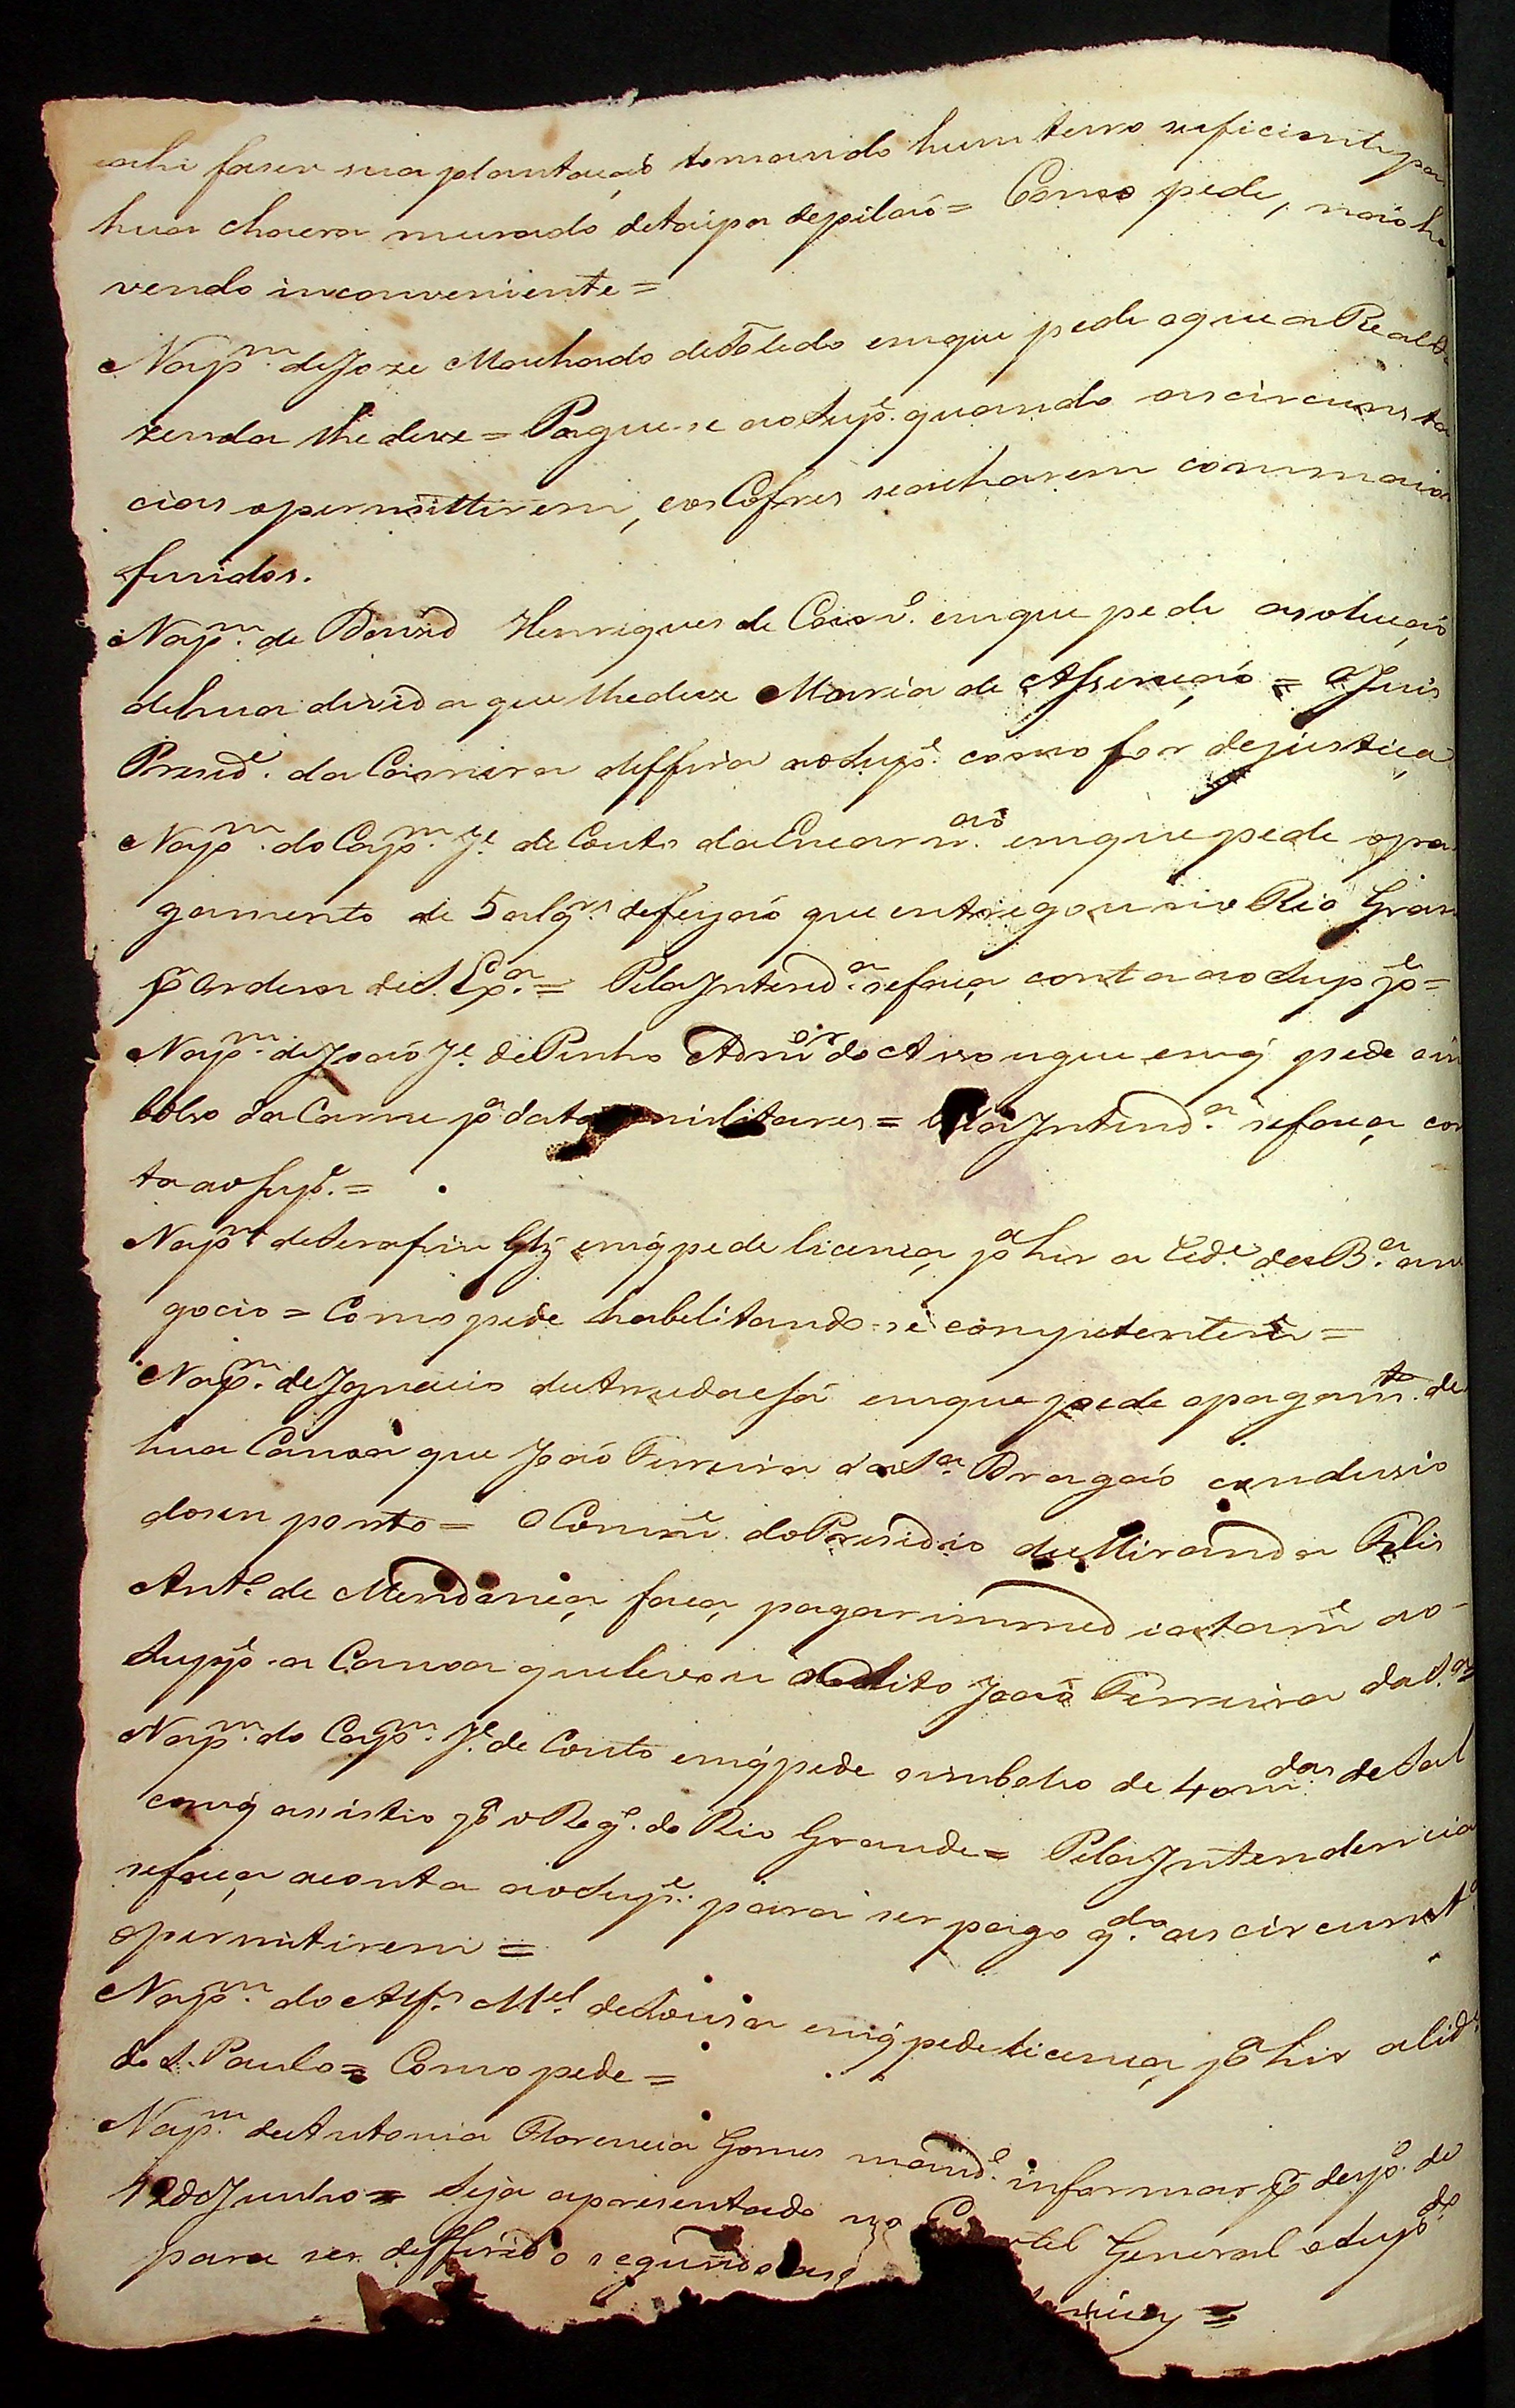 e ahi faser sua plantação tomando hum terro suficiente pa
hua chacra murado de taipa de pilaõ = Como pede, naõ ha
vendo inconveniente =
Na p.m de Joze Machado de Toledo em que pede o que a Real Fa
zenda lhe deve = Pague-se ao Sup.e quando as circunsta
cias o permittirem, e os Cofres se acharem com maior
fundos.
Na p.m de David Henriques de Carv.o em que pede a soluçaõ
de hua divida que lhe deve Maria de Assençaõ = O Juis
Presid.e da Camera diffira ao Sup.e como for de justiça
Na p.m do Cap.m J.e de Couto da Encarn.aõ em que pede o pa
gamento de 5 alq.rs de feyjaõ que entregou no Rio Gran
p ordem de S. Ex.a = Pela Intend.a se faça conta ao Supp.e =
Na p.m de Joaõ J.e de Pinho Adm.or do Assougue em q pede o im
bolso da Carne p.a data militares = Pela Intend.a se faça con
ta ao Sup.e =
Na p.m de Serafim Glz em q pede licença p.a hir a Cid.e da B.a a ne
gocio = Como pede habelitando-se competentem.e =
Na p.m de Ignacio de Almeida e Sá em que pede o pagam.to de
hua Canoa que Joaõ Ferreira da S.a Bragaõ condusio
do seu porto = O Comm.e do Presidio de Miranda Felis
Ant.o de Mendonça faça pagar immediatam.e ao
Supp.e a Canoa que levou o dito Joaõ Ferreira da S.a
Na p.m do Cap.m J.e de Couto em q pede o imbolso de 4 o m.das de Sal
com q assistio p.a o Reg.o do Rio Grande = Pela Intendencia
se faça a conta ao Sup.e para ser pago q.do as circunst.as
o permitirem =
Na p.m do Alf.s M.el de Sousa em q pede licença p.a hir a Cid.e
de S. Paulo = Como pede =
Na p.m de Antonia Florencia Gomes mand.o informar p desp.o de
12 de Junho = Seja apresentado no Quartel General o Sup.do
para ser differido segundo as